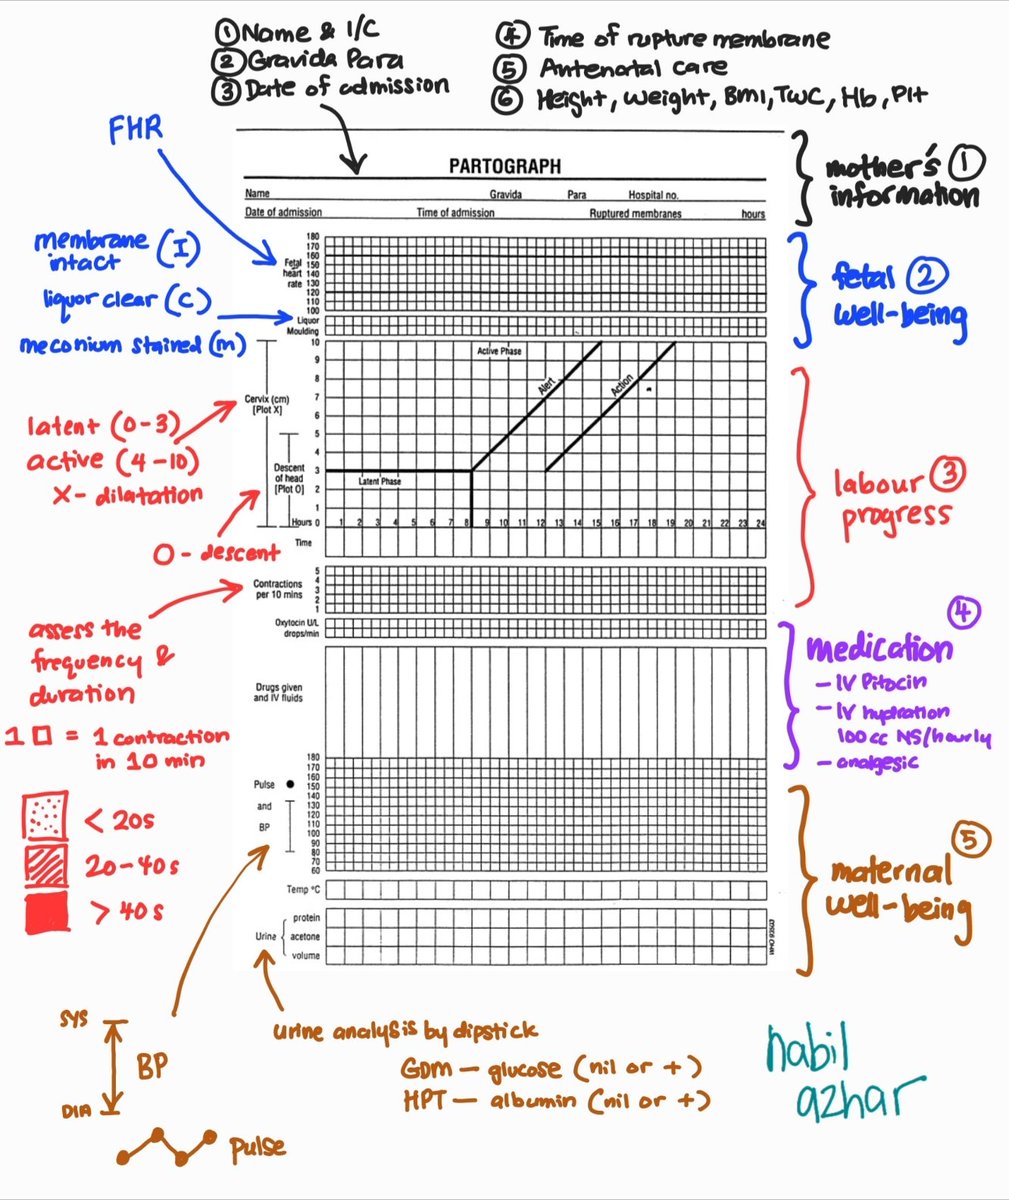 ① Name & I/C
② Gravida Para
③ Date of admission
④ Time of rupture membrane
⑤ Antenatal care
⑥ Height, weight, BMI, TWC, Hb, Plt
FHR
PARTOGRAPH
Name Gravida Para Hospital no.
Date of admission Time of admission Ruptured membranes hours
mother's ①
information
membrane (I)
intact
liquor clear (C)
meconium stained (m)
180
170
160
Fetal 150
heart 140
rate 130
120
110
100
Liquor
Moulding
fetal ②
well-being
10
9
8
7
6
5
4
3
2
1
Active Phase
Alert
Action
Cervix (cm)
[Plot X]
Descent
of head
[Plot O]
Latent Phase
Hours 0 1 2 3 4 5 6 7 8 9 10 11 12 13 14 15 16 17 18 19 20 21 22 23 24
Time
latent (0-3)
active (4-10)
X- dilatation
O - descent
labour ③
progress
5
4
3
2
1
Contractions
per 10 mins
assess the
frequency &
duration
1 □ = 1 contraction
in 10 min
< 20s
20-40s
> 40s
Oxytocin U/L
drops/min
Drugs given
and IV fluids
④
medication
- IV Pitocin
- IV hydration
100cc NS/hourly
- analgesic
180
170
160
150
140
130
120
110
100
90
80
70
60
Pulse
and
BP
Temp °C
protein
Urine acetone
volume
WHO 92503
⑤
maternal
well-being
SYS
BP
DIA
Pulse
urine analysis by dipstick
GDM - glucose (nil or +)
HPT - albumin (nil or +)
nabil
azhar